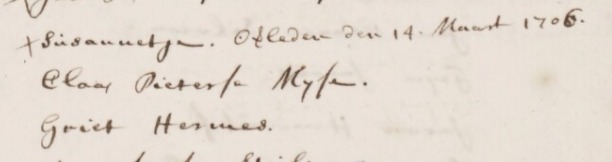 + Susannetje. Ofleden den 14. Maart 1706.
Claas Pieterse Nyse.
Griet Hermes.